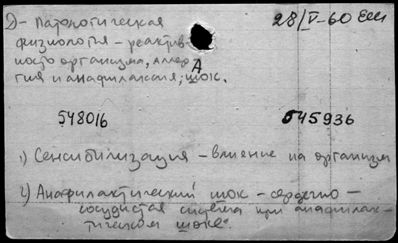 D- Патологическая 28/V-60
физиология - реактив-
ность организма, аллер
гия и анафилаксия; шок.
А
548016 545936
1) Сенсибилизация - влияние на организм
2) Анафилактический шок - сердечно -
сосудистая система при анафилак-
тическом шоке.